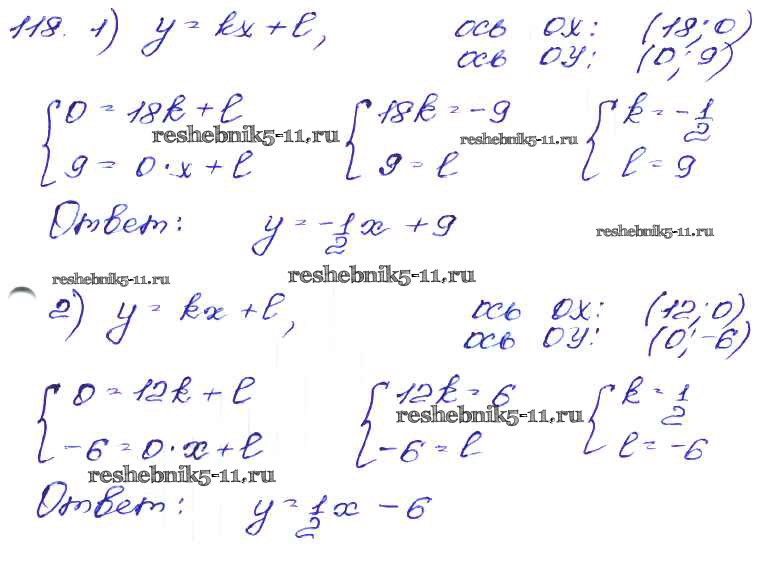 118. 1) y = kx + l, ось OX: (18; 0)
ось OY: (0; 9)
{ 0 = 18k + l { 18k = -9 { k = -1/2
reshebnik5-11.ru reshebnik5-11.ru
9 = 0·x + l 9 = l l = 9
Ответ: y = -1/2 x + 9
reshebnik5-11.ru
reshebnik5-11.ru reshebnik5-11.ru
2) y = kx + l, ось OX: (12; 0)
ось OY: (0; -6)
{ 0 = 12k + l { 12k = 6 { k = 1/2
reshebnik5-11.ru
-6 = 0·x + l -6 = l l = -6
reshebnik5-11.ru
Ответ: y = 1/2 x - 6